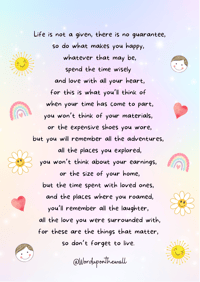 Life is not a given, there is no guarantee,
so do what makes you happy,
whatever that may be,
spend the time wisely
and love with all your heart,
for this is what you'll think of
when your time has come to part,
you won't think of your materials,
or the expensive shoes you wore,
but you will remember all the adventures,
all the places you explored,
you won't think about your earnings,
or the size of your home,
but the time spent with loved ones,
and the places where you roamed,
you'll remember all the laughter,
all the love you were surrounded with,
for these are the things that matter,
so don't forget to live.
@Wordsuponthewall